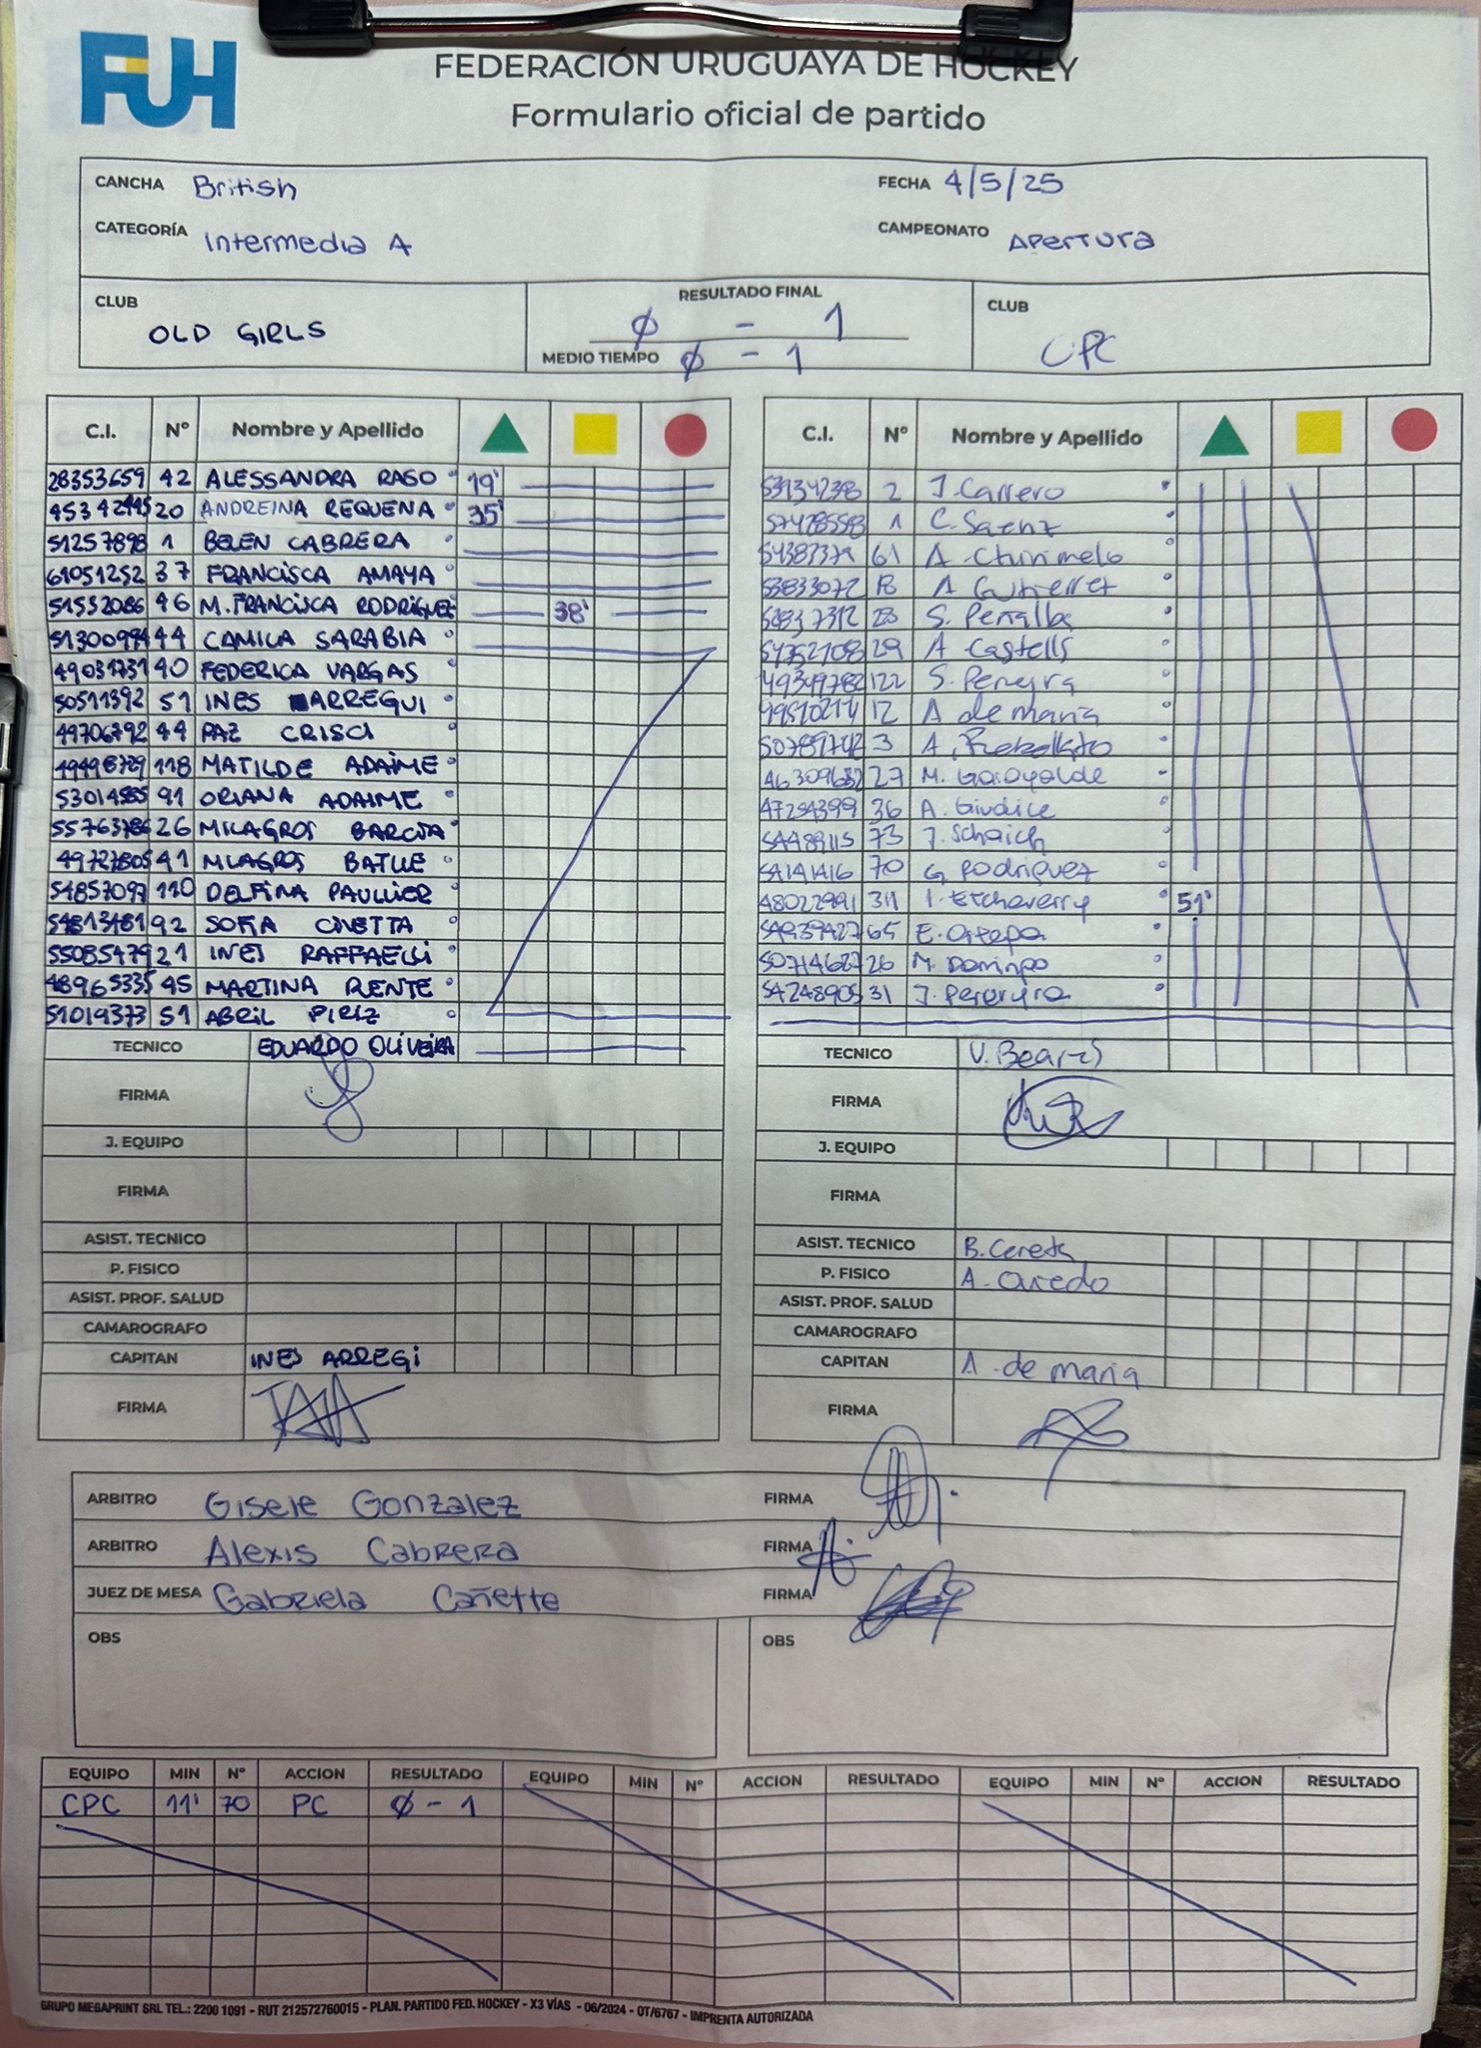 FUH
FEDERACIÓN URUGUAYA DE HOCKEY
Formulario oficial de partido
CANCHA British FECHA 4/5/25
CATEGORÍA Intermedia A CAMPEONATO Apertura
CLUB OLD GIRLS
RESULTADO FINAL Ø - 1
MEDIO TIEMPO Ø - 1
CLUB CPC
C.I. Nº Nombre y Apellido
28353659 42 ALESSANDRA RASO 19'
45342445 20 ANDREINA REQUENA 35'
51257898 1 BELEN CABRERA
61051252 37 FRANCISCA AMAYA
51532086 46 M. FRANCISCA RODRIGUEZ 38'
44 CAMILA SARABIA
49031731 40 FEDERICA VARGAS
50511392 51 INES ARREGUI
49706792 44 PAZ CRISCI
118 MATILDE ADAIME
53014585 91 ORIANA ADAIME
55763786 26 MILAGROS
49727805 41 MILAGROS BATLLE
54857097 110 DELFINA PAULLIER
54813481 92 SOFIA CIVETTA
55085479 21 INES RAFFAELLI
48965335 45 MARTINA RENTE
51019373 51 ABRIL PIRIZ
TECNICO EDUARDO OLIVEIRA
FIRMA
J. EQUIPO
FIRMA
ASIST. TECNICO
P. FISICO
ASIST. PROF. SALUD
CAMAROGRAFO
CAPITAN INES ARREGI
FIRMA
C.I. Nº Nombre y Apellido
53134238 2 J. Carrero
57428558 1 C. Saenz
54387371 61 A. Chirimelo
53833072 18 A Gutierrez
S. Peñalba
54352108 29 A Castells
49349782 122 S. Pereyra
49510214 12 A de maria
50789742 3 A. Rebellato
46309632 27 M. Garayalde
47254399 36 A. Giudice
54489115 73 J. Schaich
54141416 70 G Rodriguez
48022991 311 I. Etcheverry 51'
54939427 65 E. Ortega
50714627 26 M. Domingo
54248905 31 J. Pereryra
TECNICO V. Bearis
FIRMA
J. EQUIPO
FIRMA
ASIST. TECNICO B. Cereta
P. FISICO A. Oviedo
ASIST. PROF. SALUD
CAMAROGRAFO
CAPITAN A. de maria
FIRMA
ARBITRO Gisele Gonzalez FIRMA
ARBITRO Alexis Cabrera FIRMA
JUEZ DE MESA Gabriela Cañette FIRMA
OBS OBS
EQUIPO MIN Nº ACCION RESULTADO EQUIPO MIN Nº ACCION RESULTADO EQUIPO MIN Nº ACCION RESULTADO
CPC 11' 70 PC Ø - 1
GRUPO MEGAPRINT SRL TEL.: 2200 1091 - RUT 212572760015 - PLAN. PARTIDO FED. HOCKEY - X3 VÍAS - 06/2024 - OT/6767 - IMPRENTA AUTORIZADA